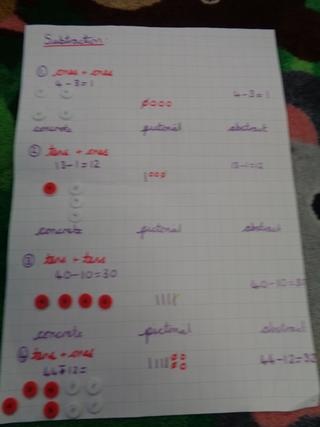 Subtraction
① ones + ones
4 - 3 = 1
4 - 3 = 1
concrete pictorial abstract
② tens + ones
13 - 1 = 12
13 - 1 = 12
concrete pictorial abstract
③ tens + tens
40 - 10 = 30
40 - 10 = 30
concrete pictorial abstract
④ tens + ones
44 - 12 =
44 - 12 = 32